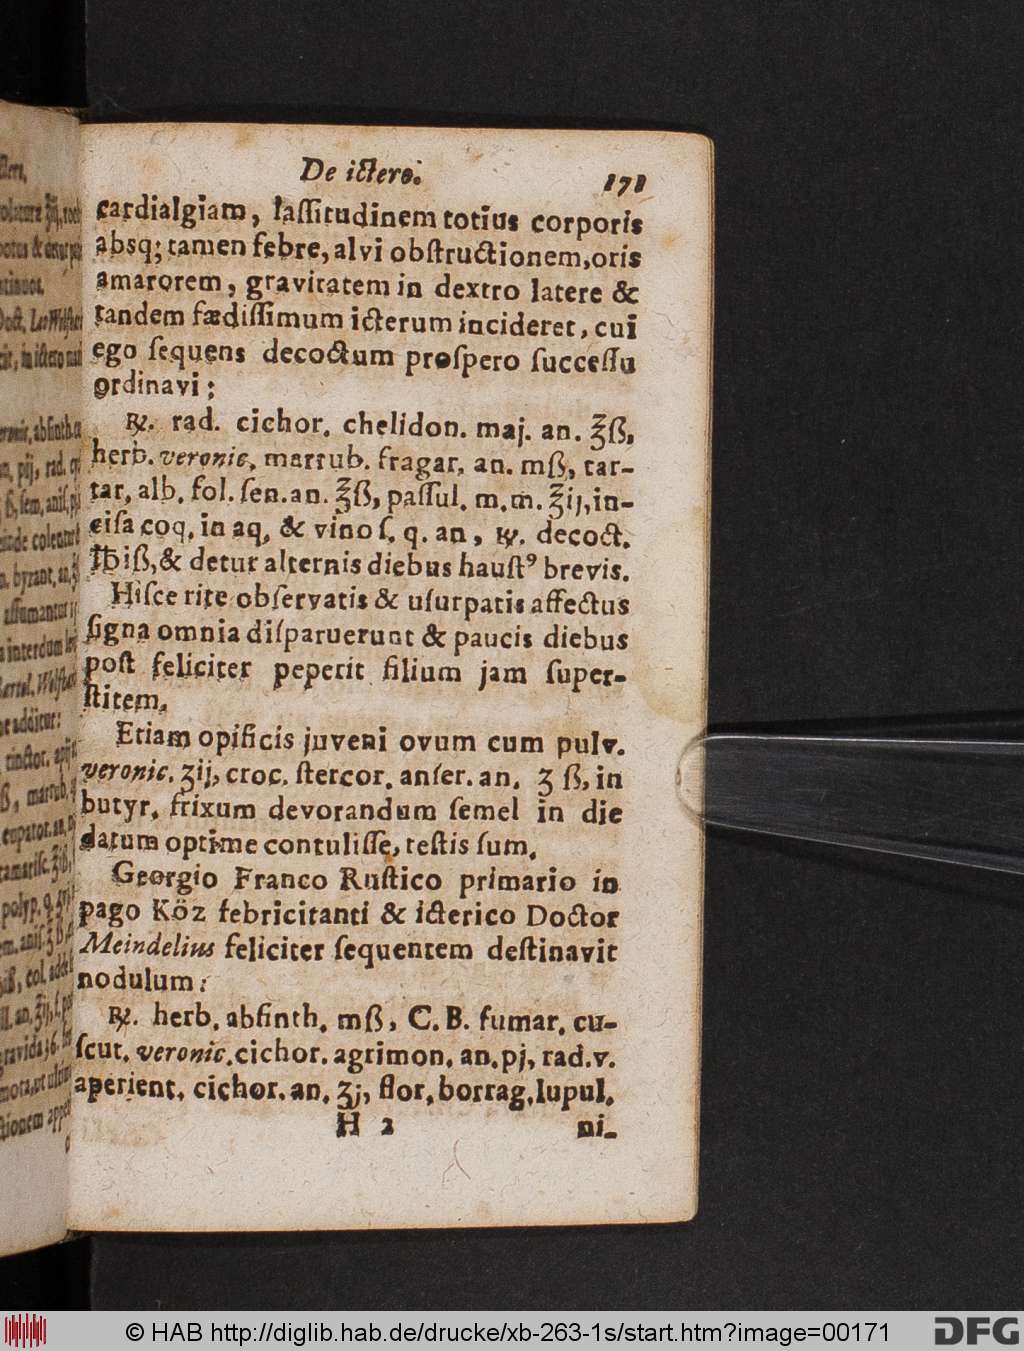 De ictero. 171
cardialgiam, laſſitudinem totius corporis
absq; tamen febre, alvi obſtructionem, oris
amarorem, gravitatem in dextro latere &
tandem fædiſſimum icterum incideret, cui
ego ſequens decoctum proſpero ſucceſſu
ordinavi:
℞. rad. cichor. chelidon. maj. an. ℥ß,
herb. veronic. marrub. fragar. an. mß, tar-
tar. alb. fol. ſen. an. ℥ß, paſſul. m. m. ℥ij, in-
ciſa coq. in aq. & vino ſ. q. an, ℞. decoct.
℔iß, & detur alternis diebus hauſtꝰ brevis.
Hiſce rite obſervatis & uſurpatis affectus
ſigna omnia diſparuerunt & paucis diebus
poſt feliciter peperit filium jam ſuper-
ſtitem.
Etiam opificis juveni ovum cum pulv.
veronic. ʒij, croc. ſtercor. anſer. an. ʒ ß, in
butyr. frixum devorandum ſemel in die
datum optime contuliſſe, teſtis ſum.
Georgio Franco Ruſtico primario in
pago Köz febricitanti & icterico Doctor
Meindelius feliciter ſequentem deſtinavit
nodulum:
℞. herb. abſinth. mß, C. B. fumar. cu-
ſcut. veronic. cichor. agrimon. an. pj, rad. v.
aperient. cichor. an. ʒj, flor. borrag. lupul.
H 2 ni-
© HAB http://diglib.hab.de/drucke/xb-263-1s/start.htm?image=00171
DFG